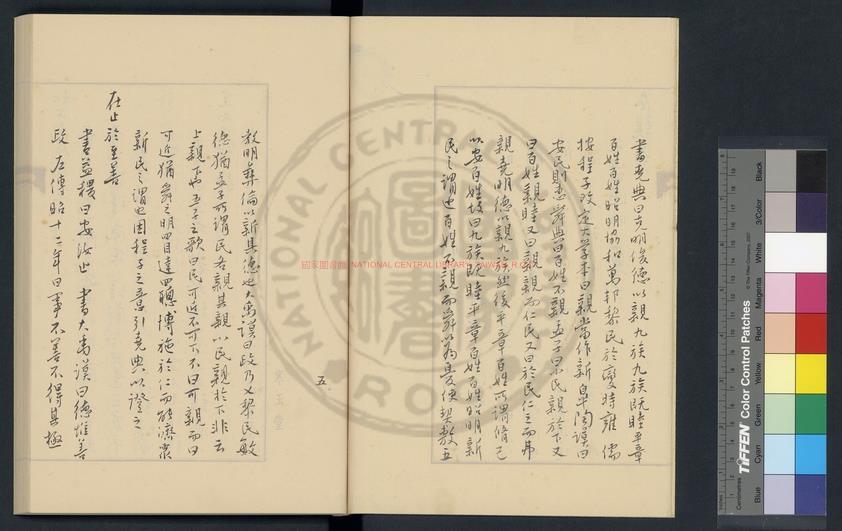 書堯典曰克明俊德以親九族九族既睦平章
百姓百姓昭明協和萬邦黎民於變時雍 儒
按程子改定大學本曰親當作新皋陶謨曰
安民則惠舜典曰百姓不親孟子曰小民親於下又
曰百姓親睦又曰親親而仁民又曰於民仁之而弗
親堯明德以親九族然後平章百姓所謂脩己
以安百姓故曰九族既睦平章百姓百姓昭明新
民之謂也百姓不親而舜以為憂使契敷五
教明彝倫以新其德也大禹謨曰政乃乂黎民敏
德猶孟子所謂民各親其親以民親於下非云
上親也五子之歌曰民可近不可下不曰可親而曰
可近猶舜之明四目達四聰博施於仁而能濟眾
新民之謂也因程子之意引堯典以證之
在止於至善
書益稷曰安汝止 書大禹謨曰德惟善
政 左傳昭十二年曰事不善不得其極
五
國家圖書館 NATIONAL CENTRAL LIBRARY
NATIONAL CENTRAL LIBRARY
圖書
TIFFEN Color Control Patches
© The Tiffen Company, 2007
Inches
Centimetres
Blue
Cyan
Green
Yellow
Red
Magenta
White
3/Color
Black